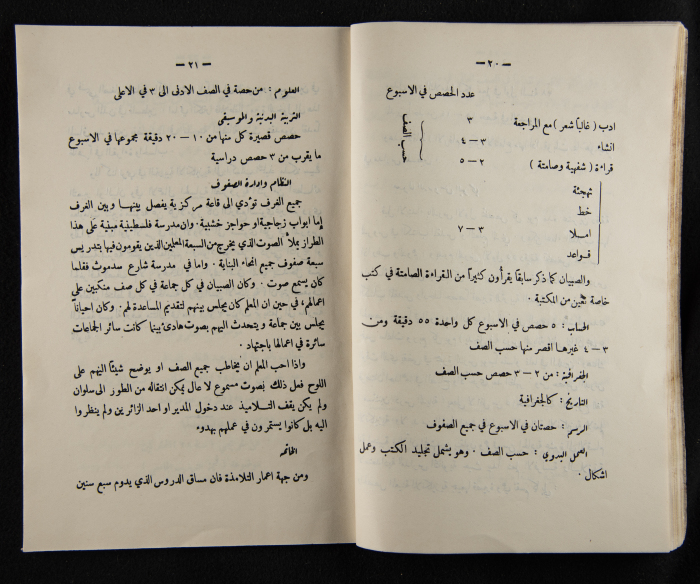 — ٢٠ —
عدد الحصص في الاسبوع
ادب ( غالباً شعر ) مع المراجعة ٣
انشاء ٣ — ٤
قراءة ( شفهية وصامتة ) ٢ — ٥
حسب الصف
تهجئة
خط
املا ٣ — ٧
قواعد
والصبيان كما ذكر سابقاً يقرأون كثيراً من القراءة الصامتة في كتب
خاصة تعين من المكتبة .
الحساب : ٥ حصص في الاسبوع كل واحدة ٥٥ دقيقة ومن
٣ — ٤ غيرها اقصر منها حسب الصف
الجغرافية : من ٢ — ٣ حصص حسب الصف
التاريخ : كالجغرافية
الرسم : حصتان في الاسبوع في جميع الصفوف
العمل اليدوي : حسب الصف . وهو يشمل تجليد الكتب وعمل
اشكال .
— ٢١ —
العلوم : من حصة في الصف الادنى الى ٣ في الاعلى
التربية البدنية والموسيقى
حصص قصيرة كل منها من ١٠ — ٢٠ دقيقة بمجموعها في الاسبوع
ما يقرب من ٣ حصص دراسية
النظام وادارة الصفوف
جميع الغرف تؤدي الى قاعة مركزية يفصل بينها وبين الغرف
إما ابواب زجاجية او حواجز خشبية . وان مدرسة فلسطينية مبنية على هذا
الطراز يملأ الصوت الذي يخرج من السبعة المعلمين الذين يقومون فيها بتدريس
سبعة صفوف جميع انحاء البناية . واما في مدرسة شارع سدموث فقلما
كان يسمع صوت . وكان الصبيان في كل جماعة في كل صف منكبين على
اعمالهم ، في حين ان المعلم كان يجلس بينهم لتقديم المساعدة لهم . وكان احياناً
يجلس بين جماعة ويتحدث اليهم بصوت هادئ بينما كانت سائر الجماعات
سائرة في اعمالها باجتهاد .
واذا احب المعلم ان يخاطب جميع الصف او يوضح شيئاً اليهم على
اللوح فعل ذلك بصوت مسموع لا عال يمكن انتقاله من الطور الى سلوان
ولم يكن يقف التلاميذ عند دخول المدير او احد الزائرين ولم ينظروا
اليه بل كانوا يستمرون في عملهم بهدوء
الخاتمة
ومن جهة اعمار التلامذة فان مساق الدروس الذي يدوم سبع سنين